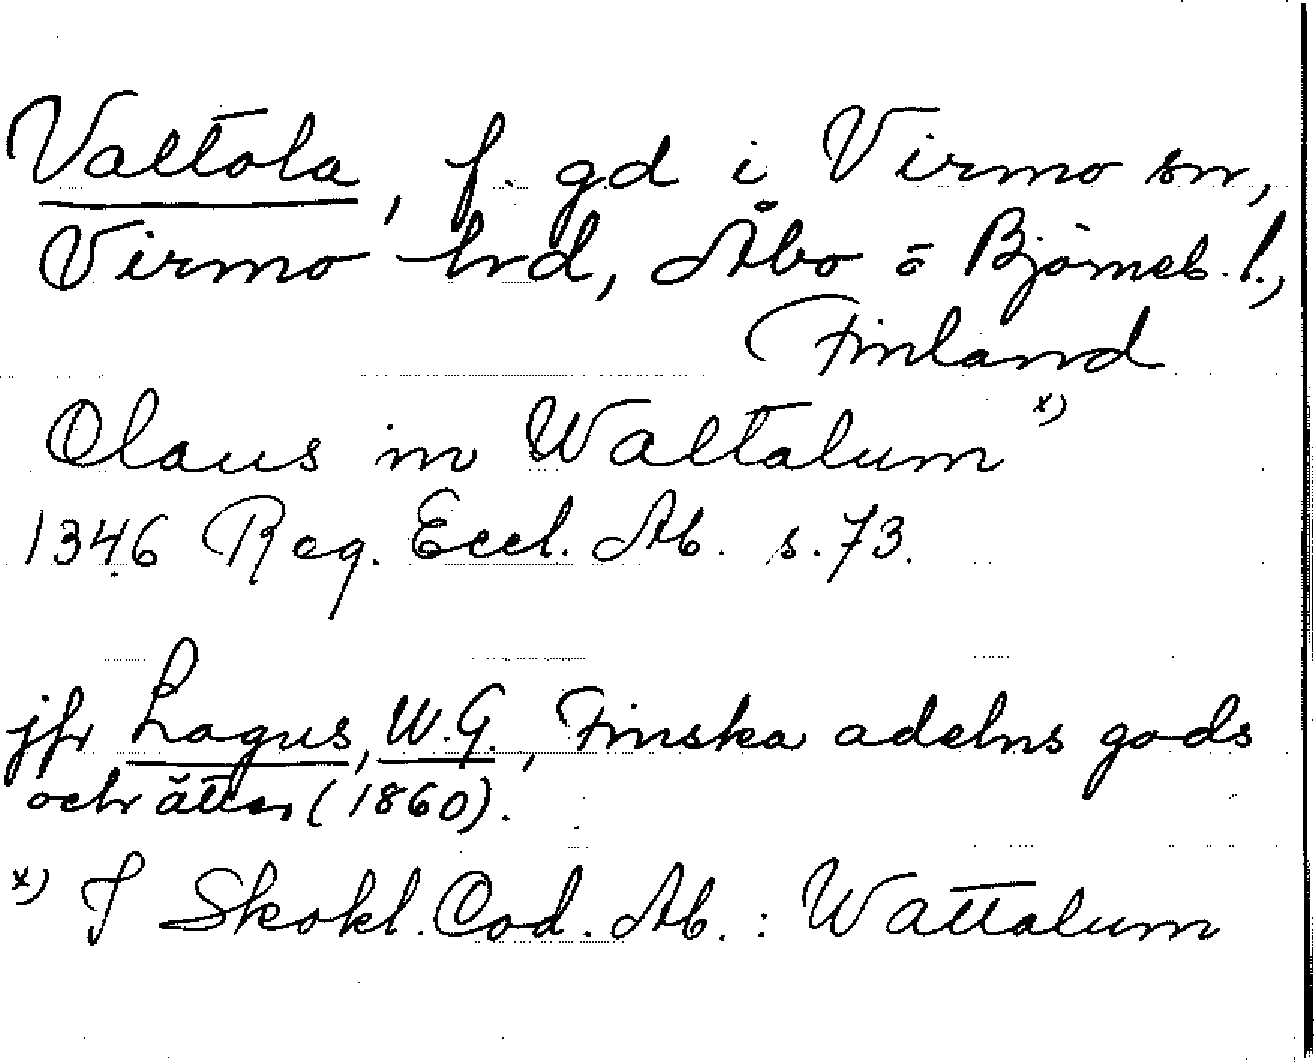 Valtola, f. gd i Virmo sn,
Virmo hrd, Åbo o Björneb. l.,
Finland
Olaus in Waltalum x)
1346 Reg. Eccl. Ab. s. 73.
jfr Lagus, W. G., Finska adelns gods
och ätter (1860).
x) I Skokl. Cod. Ab. : Wattalum